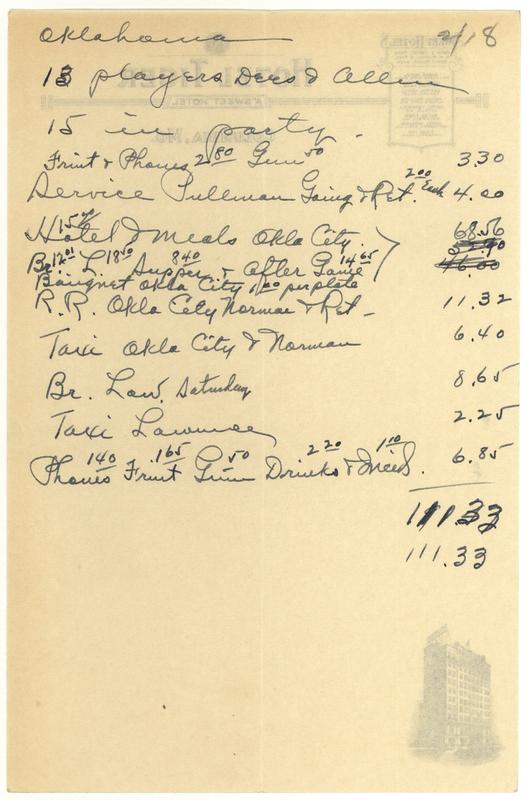 Oklahoma 2/18
13 players Dees & Allen
15 in party.
Fruit & Phones 2 80 Gum 50 3.30
Service Pullman Going & Ret. 2 00 Each 4.00
Hotel 15 & Meals Okla City. 68.56
Br. 12 01 L. 18 50 Supper 8 40 & After Game 14 65
Banquet Okla City 1 00 per plate
R.R. Okla City Norman & Ret - 11.32
Taxi Okla City & Norman 6.40
Br. Law. Saturday 8.65
Taxi Lawrence 2.25
Phones 1 40 Fruit 1.65 Gum 50 Drinks 2 20 & 1 00 6.85
111.33
111.33
HOTEL TIGER
"A SWEET HOTEL"